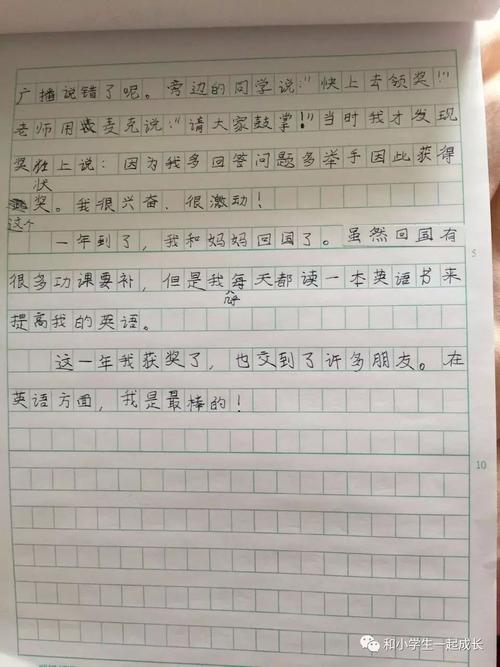 广播说错了呢。旁边的同学说:“快上去领奖!”
老师用麦克说:“请大家鼓掌!”当时我才发现
奖状上说:因为我多回答问题多举手因此获得
奖。我很兴奋、很激动!
这个
一年到了,我和妈妈回国了。虽然回国有
5
很多功课要补,但是我每天都读一本英语书来
提高我的英语。
这一年我获奖了,也交到了许多朋友。在
英语方面,我是最棒的!
10
和小学生一起成长